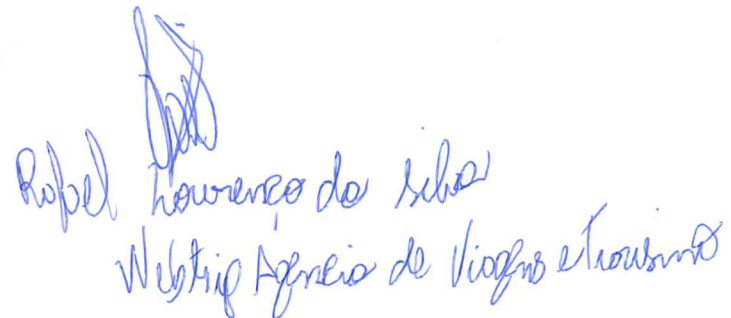 Rafael Lourenço da Silva
Webtrip Agencia de Viagens e Turismo